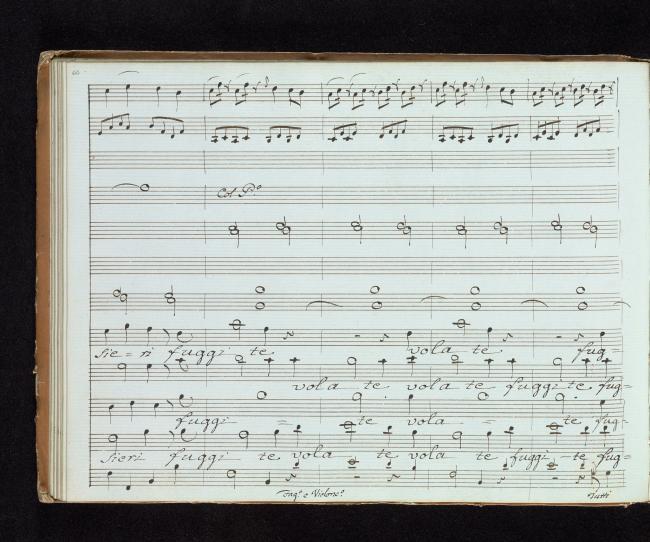 60
Col Pº
sie = ri fuggi te vola te fug=
vola te vola te fuggi te fug=
fuggi = te vola = te fug=
sieri fuggi te vola te vola te fuggi = te fug=
Fagº e Violonº Tutti